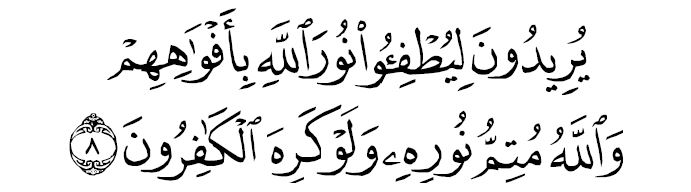 يُرِيدُونَ لِيُطْفِـُٔوا۟ نُورَ ٱللَّهِ بِأَفْوَٰهِهِمْ
وَٱللَّهُ مُتِمُّ نُورِهِۦ وَلَوْ كَرِهَ ٱلْكَٰفِرُونَ ٨